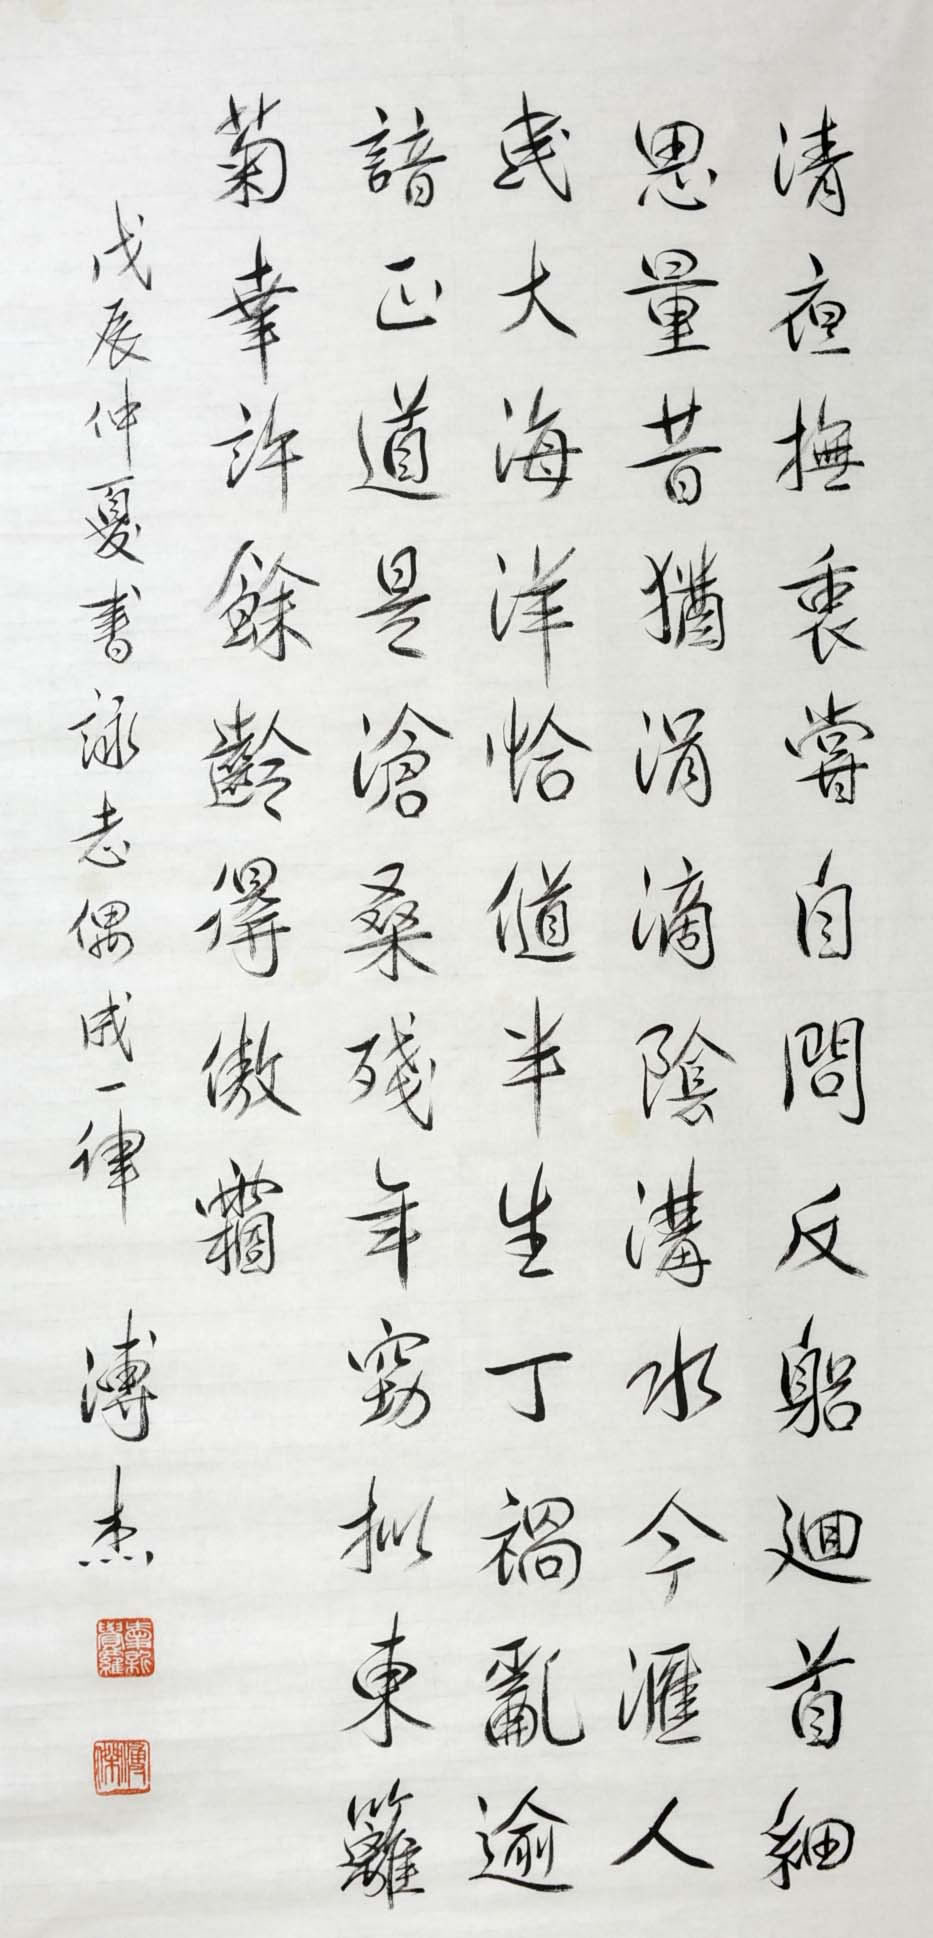 清夜撫衷嘗自問反躳迴首細
思量昔猶涓滴陰溝水今滙人
民大海洋恰值半生丁禍亂逾
諳正道是滄桑殘年窃拟東籬
菊幸許餘齡得傲霜
戊辰仲夏書詠志偶成一律 溥杰
愛新覺羅
溥傑